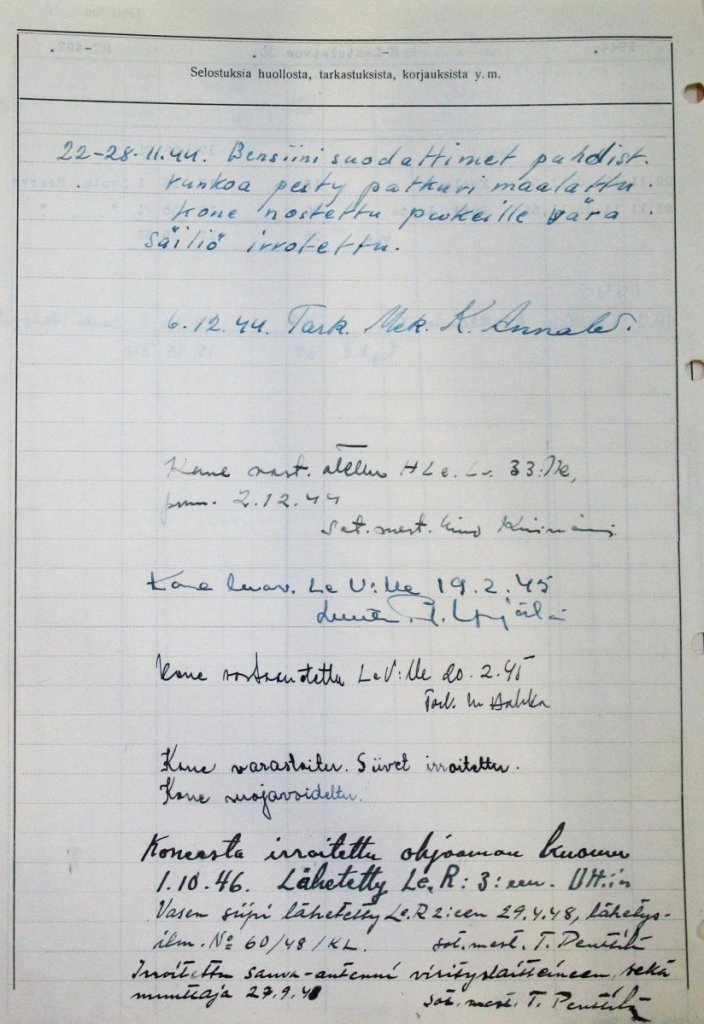 Selostuksia huollosta, tarkastuksista, korjauksista y. m.
22-28.11.44. Bensiinisuodattimet puhdist.
runkoa pesty patkuri maalattu.
Kone nostettu pukeille vara
säiliö irrotettu.
6.12.44. Tark. Mek. K. Annala.
Kone vast. otettu HLe.Lv. 33:lle,
2.12.44
sot.mest. Eino
Kone luov. LeV:lle 19.2.45
Kone vastaanotettu LeV:lle 20.2.45
Kone varastoitu. Siivet irroitettu.
Kone suojavoideltu.
Koneesta irroitettu ohjaamon kuomu
1.10.46. Lähetetty Le.R:3:een. Utt:iin
Vasen siipi lähetetty Le.R 2:een 29.4.48, lähetys-
ilm. No 60/48/KL. sot. mest. T. Penttilä
Irroitettu sauva-antenni virityslaitteineen, sekä
muuttaja 27.9.48 sot. mest. T. Penttilä